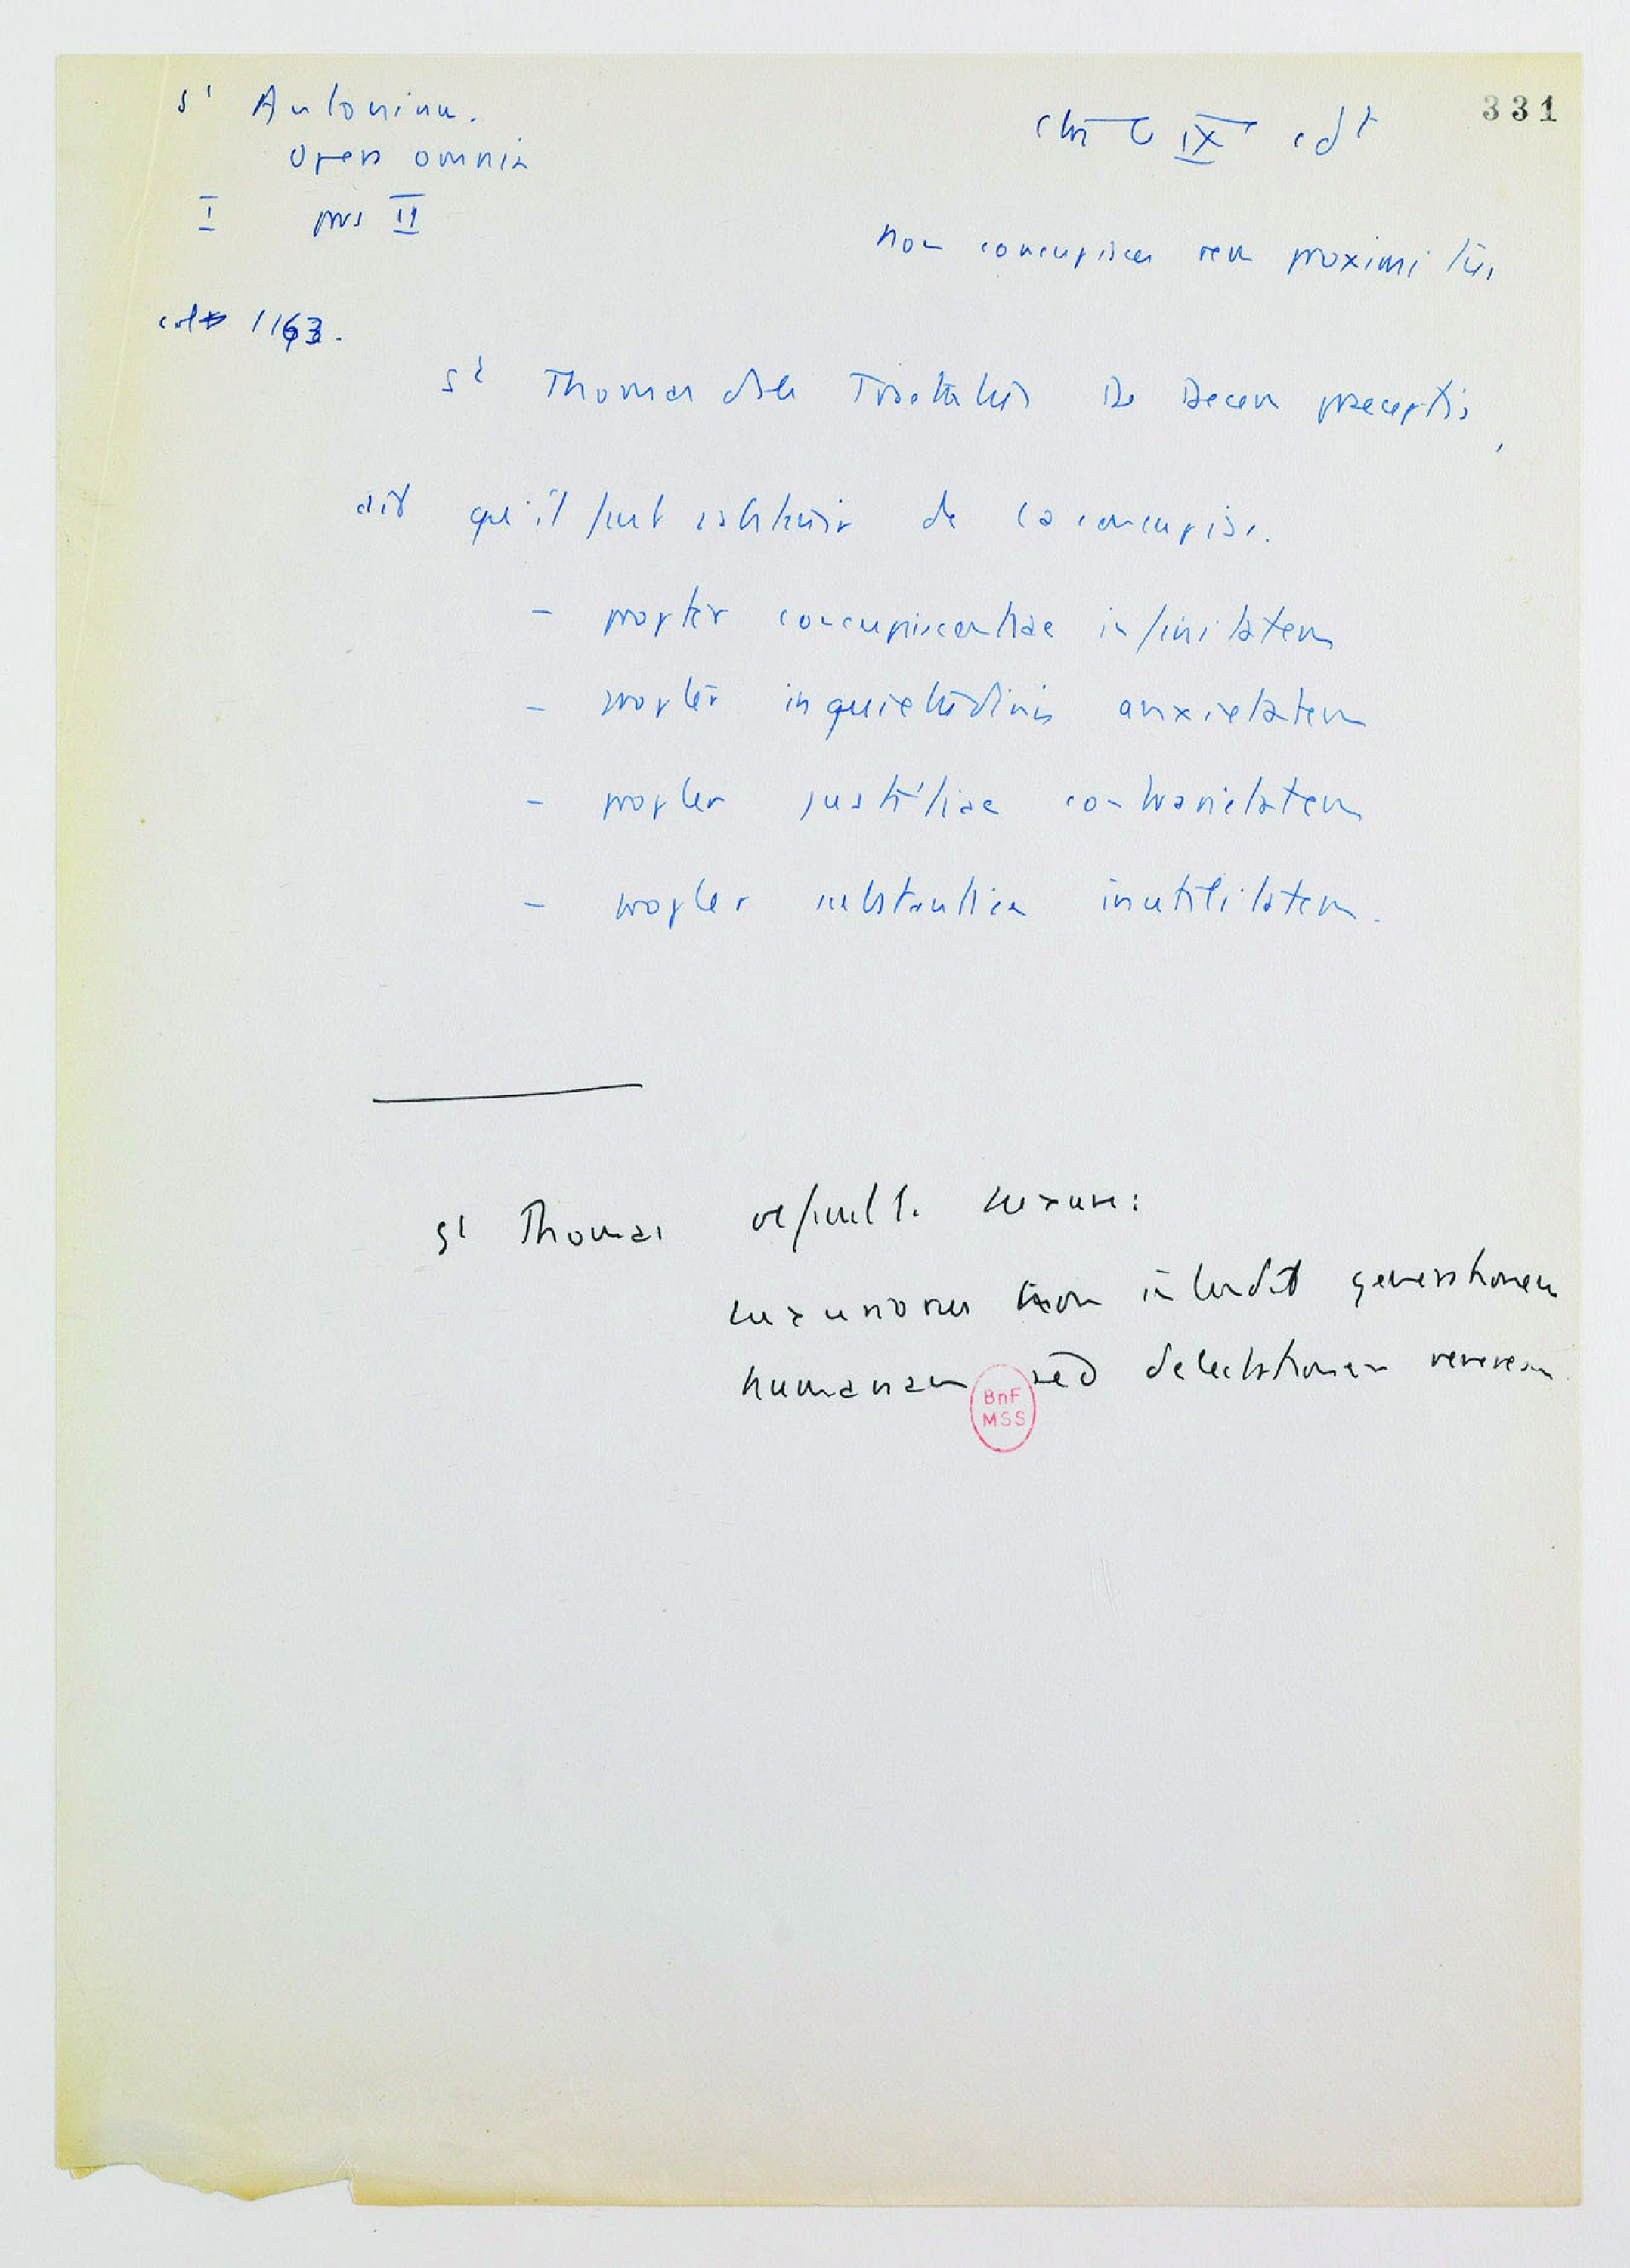 331
St Antonin.
Opera omnia
I pars II
col 1163.
IX cdt
non concupisces rem proximi tui
St Thomas ds le Tractatus De Decem praeceptis,
dit qu'il faut s'abstenir de la concupisc.
- propter concupiscentiae infinitatem
- propter inquietudinis anxietatem
- propter justitiae contrarietatem
- propter substantiae inutilitatem.
St Thomas luxure:
luxuriosus non intendit generationem
humanam sed delectationem veneream
BnF
MSS